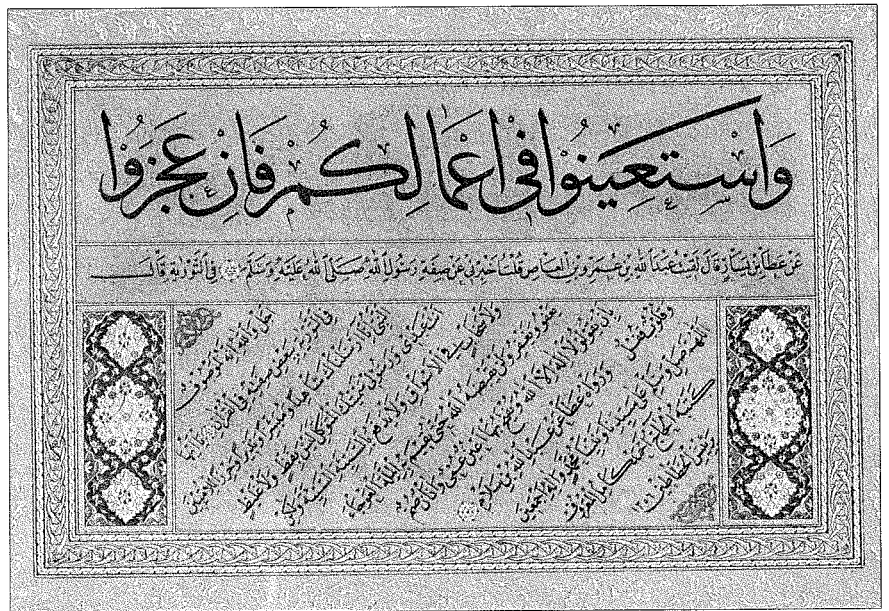 وَاسْتَعِينُوا فِى اَعْمَالِكُمْ فَاِنْ عَجَزُوا
عن عطاء بن يسار قال لقيت عبد الله بن عمرو بن العاص قلت اخبرنى عن صفة رسول الله صلى الله عليه وسلم فى التورية قال
اجل والله انه لموصوف
فى التورية ببعض صفته فى القرآن يا ايها
النبى انا ارسلناك شاهدا ومبشرا ونذيرا وحرزا للاميين
انت عبدى ورسولى سميتك المتوكل ليس بفظ ولا غليظ
ولا سخاب فى الاسواق ولا يدفع بالسيئة السيئة ولكن
يعفو ويغفر ولن يقبضه الله حتى يقيم به الملة العوجاء
بان يقولوا لا اله الا الله ويفتح بها اعين عمى وآذان صم
وقلوب غلف ورواه عطاء بن عبد الله بن سلام
اللهم صل وسلم على سيدنا ونبينا محمد وآله اجمعين
كتبه الحاج احمد كامل المعروف
برئيس الخطاطين